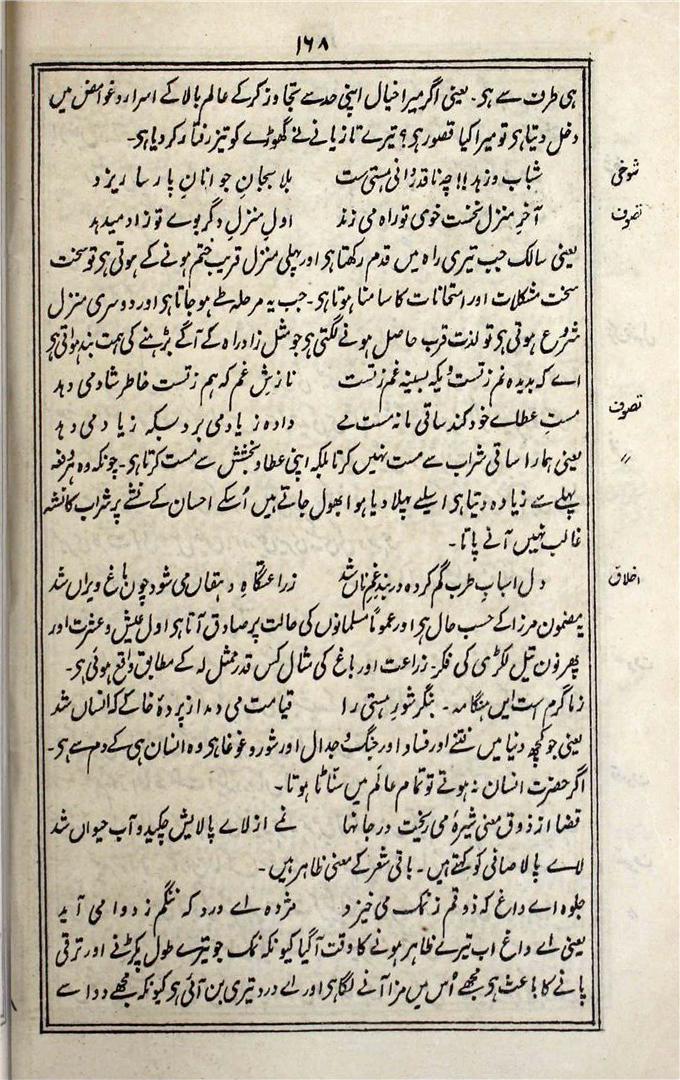 ۱۶۸
ہی طرف سے ہی۔ یعنی اگر میرا خیال اپنی حد سے تجاوز کر کے عالم بالا کے اسرار و غوامض میں
دخل دیتا ہی تو میرا کیا قصور ہی؟ تیرے تازیانے نے گھوڑے کو تیز رفتار کر دیا ہی۔
شوخی شباب و زہد!! چہ ناقدردانی ہستی ست بلا بجانِ جوانانِ پارسا ریزد
تصوف آخرِ منزل نخست خوی تو راہ می زند اولِ منزلِ دگر بوے تو زاد میدہد
یعنی سالک جب تیری راہ میں قدم رکھتا ہی اور پہلی منزل قریب ختم ہونے کے ہوتی ہی تو سخت
سخت مشکلات اور امتحانات کا سامنا ہوتا ہی۔ جب یہ مرحلہ طے ہو جاتا ہی اور دوسری منزل
شروع ہوتی ہی تو لذت قرب حاصل ہونے لگتی ہی جو مثل زاد راہ کے آگے بڑہنے کی ہمت بندہواتی ہی
اے کہ بدیدہ نم ز تست ویکہ بسینہ غم ز تست نازشِ غم کہ ہم ز تست خاطر شاد می دہد
تصوف مستِ عطاے خود کند ساقی ما نہ مست مے دادہ ز یاد می برد بسکہ زیاد می دہد
〃 یعنی ہمارا ساقی شراب سے مست نہیں کرتا بلکہ اپنی عطا و بخشش سے مست کرتا ہی۔ چونکہ وہ ہر دفعہ
پہلے سے زیادہ دیتا ہی اسلیے پہلا دیا ہوا بھول جاتے ہیں اُسکے احسان کے نشے پر شراب کا نشہ
غالب نہیں آنے پاتا۔
اخلاق دل اسبابِ طرب گم کردہ در بندِ غمِ ناں شد زراعتگاہِ دہقاں می شود چون باغ ویراں شد
یہ مضمون مرزا کے حسب حال ہی اور عموماً مسلمانوں کی حالت پر صادق آتا ہی اول عیش و عشرت اور
پھر نون تیل لکڑی کی فکر۔ زراعت اور باغ کی مثال کس قدر ممثل لہ کے مطابق واقع ہوئی ہی۔
ز ما گرم ست ایں ہنگامہ۔ بنگر شورِ ہستی را قیامت می دمد از پردۂ خاکے کہ انساں شد
یعنی جو کچھ دنیا میں فتنے اور فساد اور جنگ و جدال اور شور و غوغا ہی وہ انسان ہی کے دم سے ہی۔
اگر حضرت انسان نہ ہوتے تو تمام عالم میں سنّاٹا ہوتا۔
قضا از ذوق معنی شیرۂ می ریخت در جانہا نمے از لاے پالایش چکید و آب حیواں شد
لاے پالا صافی کو کہتے ہیں۔ باقی شعر کے معنی ظاہر ہیں۔
جلوہ اے داغ کہ ذوقم ز نمک می خیزد مژدہ اے درد کہ ننگم ز دوا می آید
یعنی اے داغ اب تیرے ظاہر ہونے کا وقت آگیا کیونکہ نمک جو تیرے طول پکڑنے اور ترقی
پانے کا باعث ہو مجھے اُس میں مزا آنے لگا ہی اور اے درد تیری بن آئی ہی کیونکہ مجھے دوا سے